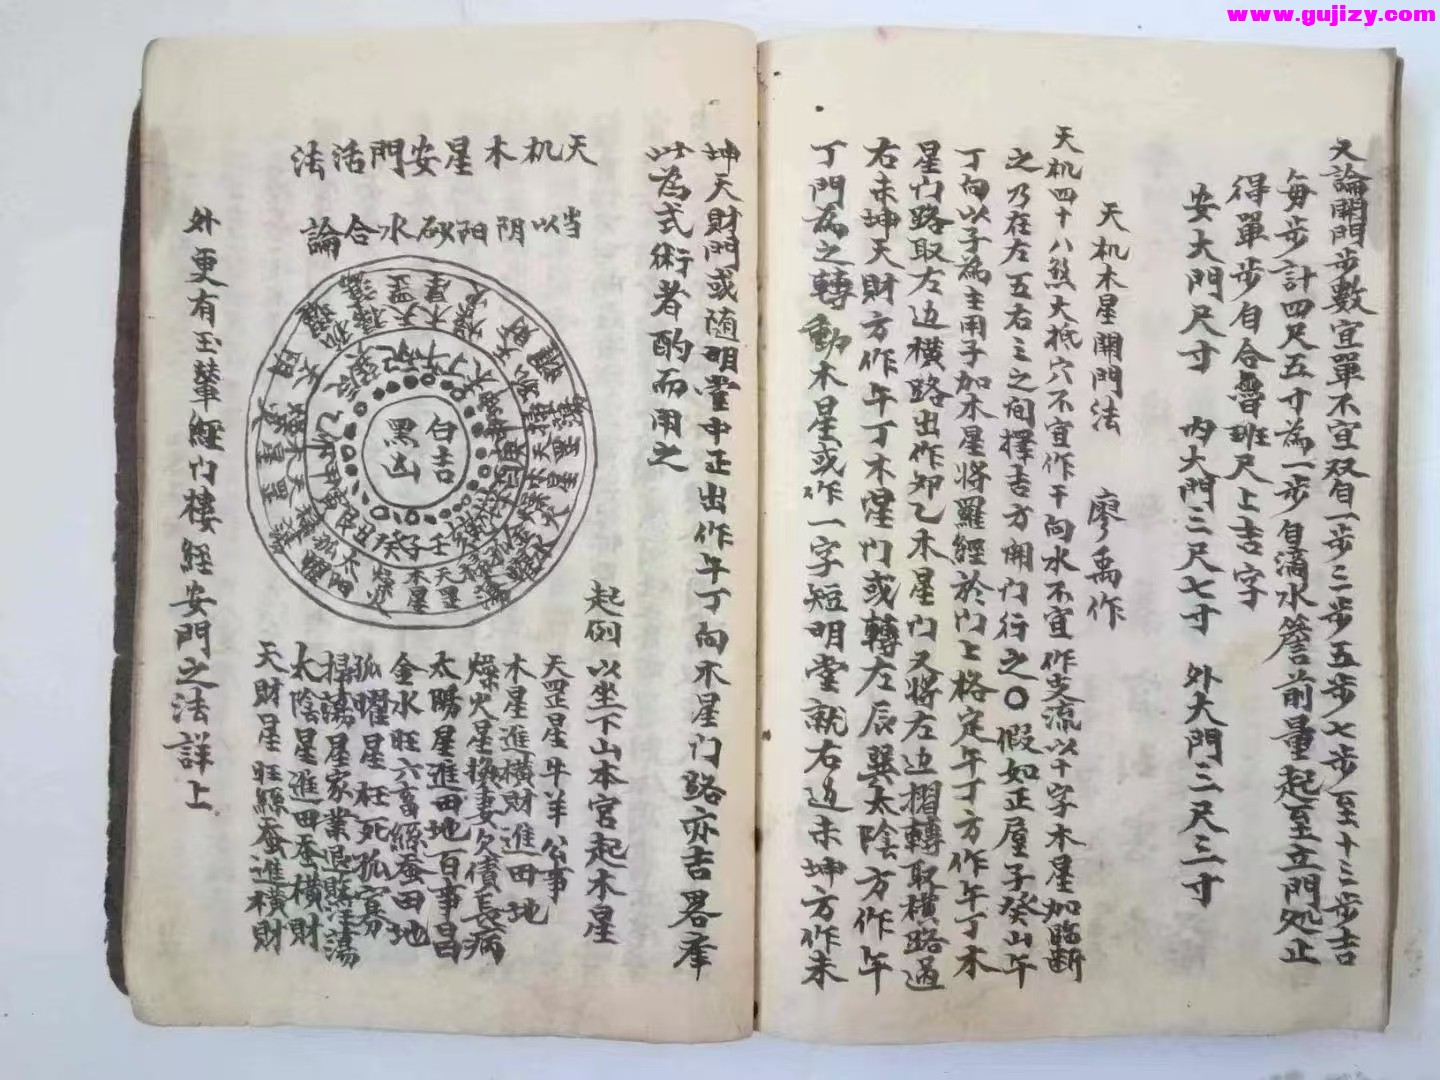 www.gujizy.com
又論開門步數宜單不宜双自一步三步五步七步至十三步吉
每步計四尺五寸為一步自滴水簷前量起至立門処止
得單步自合魯班尺上吉字
安大門尺寸 内大門三尺七寸 外大門三尺三寸
天机木星開門法 廖禹作
天机四十八煞大抵穴不宜作干向水不宜作支流以十字木星加臨断
之乃在左五右三之间擇吉方開門行之〇假如正屋子癸山午
丁向以子為主用子加木星將羅經於门上格定午丁方作午丁木
星门路取左边横路出作卯乙木星门又將左边摺轉取横路過
右未坤天財方作午丁木星门或轉左辰巽太陰方作午
丁門為之轉動木星或作一字短明堂就右边未坤方作未
坤天財門或随明堂中正出作午丁向木星门路亦吉畧举
以為式術者酌而用之
天机木星安門活法
当以阴阳砂水合論
白吉
黑凶
壬子癸丑艮
天罡
木星
燥火
太阳
孤曜
起例以坐下山本宮起木星
天罡星牛羊公事
木星進横財進田地
燥火星换妻欠债長病
太陽星進田地百事昌
金水旺六畜絲蚕田地
孤曜星枉死孤寡
掃蕩星家業退賍淫蕩
太陰星進田蚕横財
天財星旺絲蚕進横財
外更有玉輦經门樓經安門之法詳上